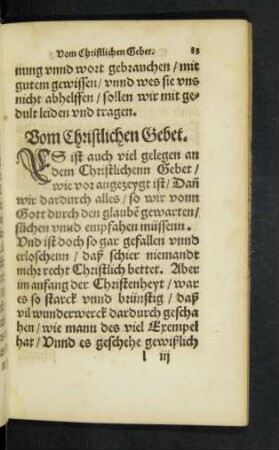 Vom Christlichen Gebet. 83
nung vnnd wort gebrauchen / mit
gutem gewissen / vnnd wes sie vns
nicht abhelffen / sollen wir mit ge-
dult leiden vnd tragen.
Vom Christlichen Gebet.
ES ist auch viel gelegen an
dem Christlichenn Gebet /
wie vor angezeygt ist / Dañ
wir dardurch alles / so wir vonn
Gott durch den glaubē gewarten /
sůchen vnnd empfahen müssenn.
Vnd ist doch so gar gefallen vnnd
erloschenn / daß schier niemandt
mehr recht Christlich bettet. Aber
im anfang der Christenheyt / war
es so starck vnnd brünstig / daß
vil wunderwerck dardurch gescha
hen / wie mann des viel Exempel
hat / Vnnd es geschehe gewißlich
l iij